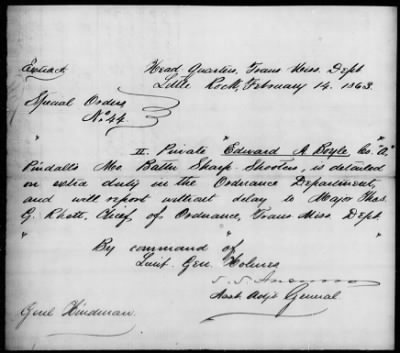 Extract
Head Quarters, Trans Miss. Dept
Little Rock, February 14. 1863.
Special Orders
No. 44.
" "
II. Private Edward A. Boyle Co. "A."
Pindall's Mo. Battn Sharp-Shooters, is detailed
on extra duty in the Ordnance Department,
and will report without delay to Major Thos.
G. Rhett, Chief of Ordnance, Trans Miss. Dept.
"
By command of
Lieut. Gen. Holmes
S. S. Anderson
Asst Adjt General.
Genl Hindman.